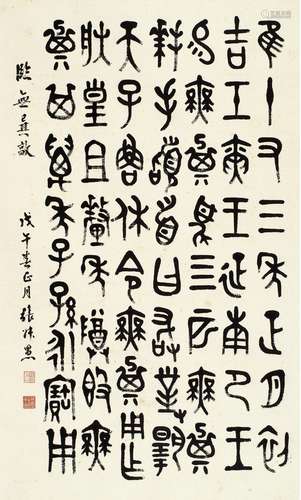 隹十又三年正月初
吉壬寅王征南尸王
易無㠱馬亖匹無㠱
拜手稽首曰敢對揚
天子魯休令無㠱用乍
朕皇且釐季隣𣪘無
㠱其萬年子孫永寶用
臨無㠱敦
戊午春正月張